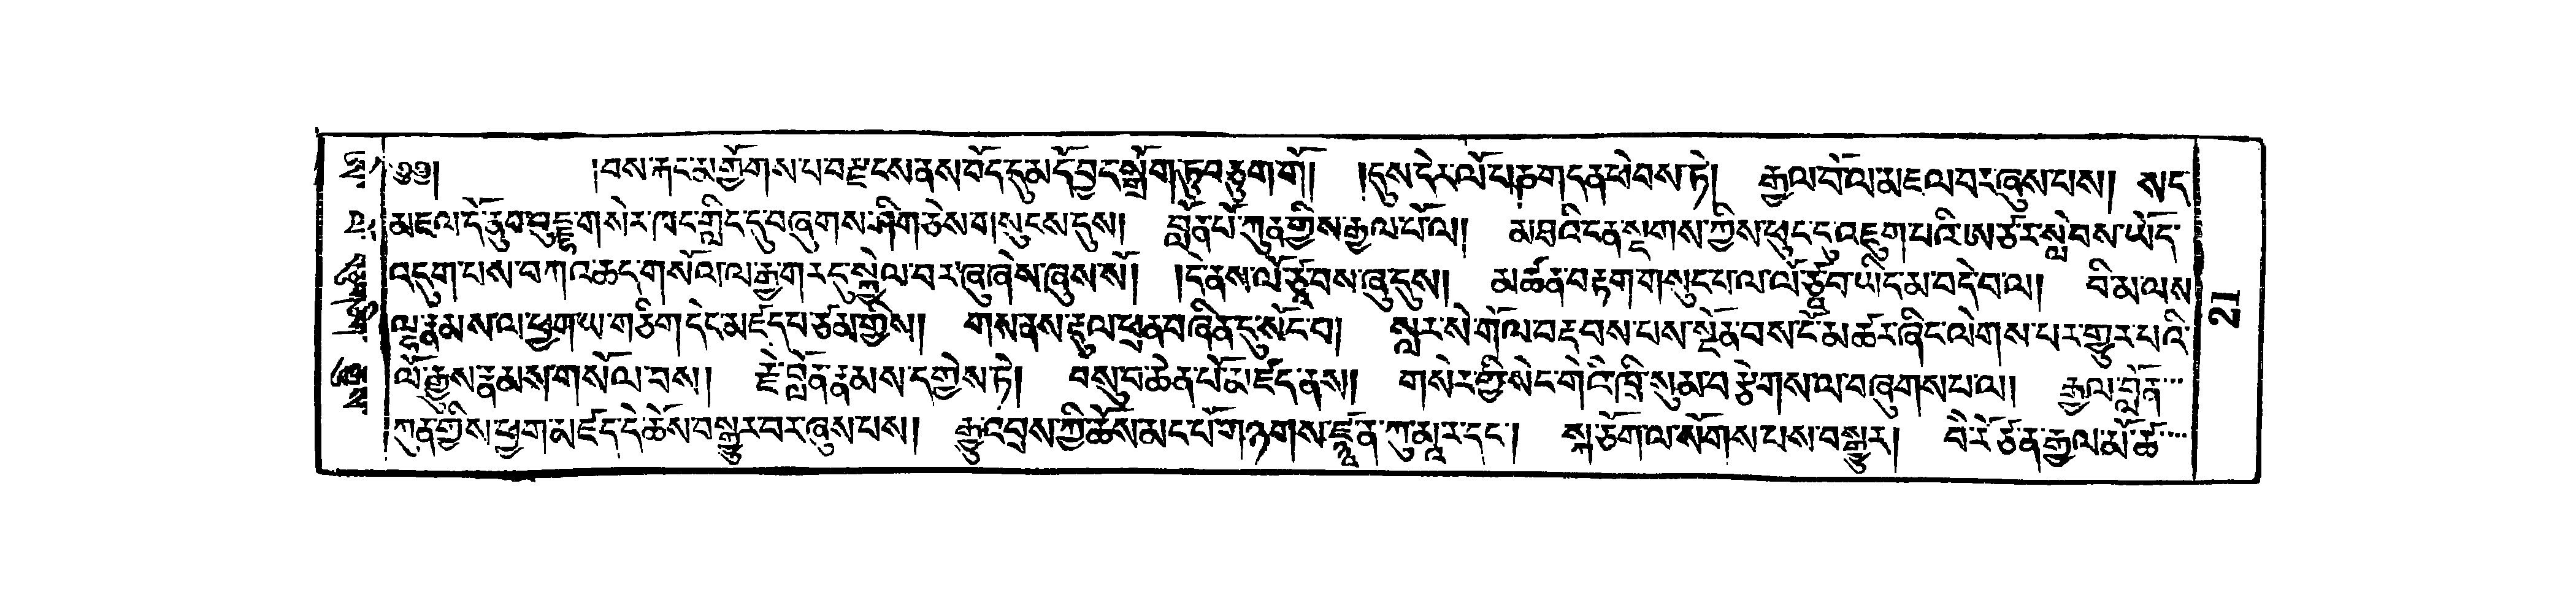 ༄༅། །བས་རྐང་མགྱོགས་པ་བརྫངས་ནས་བོད་དུ་མདོ་བྱད་སྒྲོག་ཏུ་བཅུག་གོ། །དུས་དེར་ལོ་པཎ་ཆག་དན་ཕེབས་ཏེ། རྒྱལ་བོ་ལ་མཇལ་བར་ཞུས་པས། སད་
མཇལ་དོ་ནུབ་བུདྡྷ་གསེར་ཁང་གླིང་དུ་བཞུགས་ཤིག་ཅེས་གསུངས་དུས། བློན་པོ་ཀུན་གྱིས་རྒྱལ་པོ་ལ། མཐའི་ངན་སྔགས་ཀྱིས་ཕུང་དུ་འཇུག་པའི་ཨ་ཙར་སླེབས་ཡོད་
འདུག་པས་བཀའ་ཆད་གསོལ་ལ་རྒྱ་གར་དུ་སྐྱེལ་བར་ཞུ་ཞེས་ཞུས་སོ། །དེ་ནས་ལོ་ཙཱ་བས་ཞུ་དུས། མཚན་བརྟག་གསུང་པ་ལ་ལོ་ཙཱ་བ་ཡིད་མ་བདེ་བ་ལ། བི་མ་ལས་
ལྷ་རྣམས་ལ་ཕྱག་ཡ་གཅིག་དེང་མཛད་པ་ཙམ་གྱིས། གསནས་རྡུལ་ཕྲན་བཞིན་དུ་སོང་བ། སླར་སེ་གོལ་བརྡབས་པས་སྔོན་བས་ངོ་མཚར་ཞིང་ལེགས་པར་གྱུར་པའི་
ལོ་རྒྱུས་རྣམས་གསོལ་བས། རྗེ་བློན་རྣམས་དགྱེས་ཏེ། བསུ་བ་ཆེན་པོ་མཛད་ནས། གསེར་གྱི་སེང་གེའི་ཁྲི་སུམ་བརྩེགས་ལ་བཞུགས་པ་ལ། རྒྱལ་བློན་
ཀུན་གྱིས་ཕྱག་མཛད་དེ་ཆོས་བསྒྱུར་བར་ཞུས་པས། རྒྱུ་འབྲས་ཀྱི་ཆོས་མང་པོ་གཉགས་ཛྙཱ་ན་ཀུ་མཱ་ར་དང་། སྐ་ཅོག་ལ་སོགས་པས་བསྒྱུར། བཻ་རོ་ཙ་ན་རྒྱལ་མོ་ཚ་